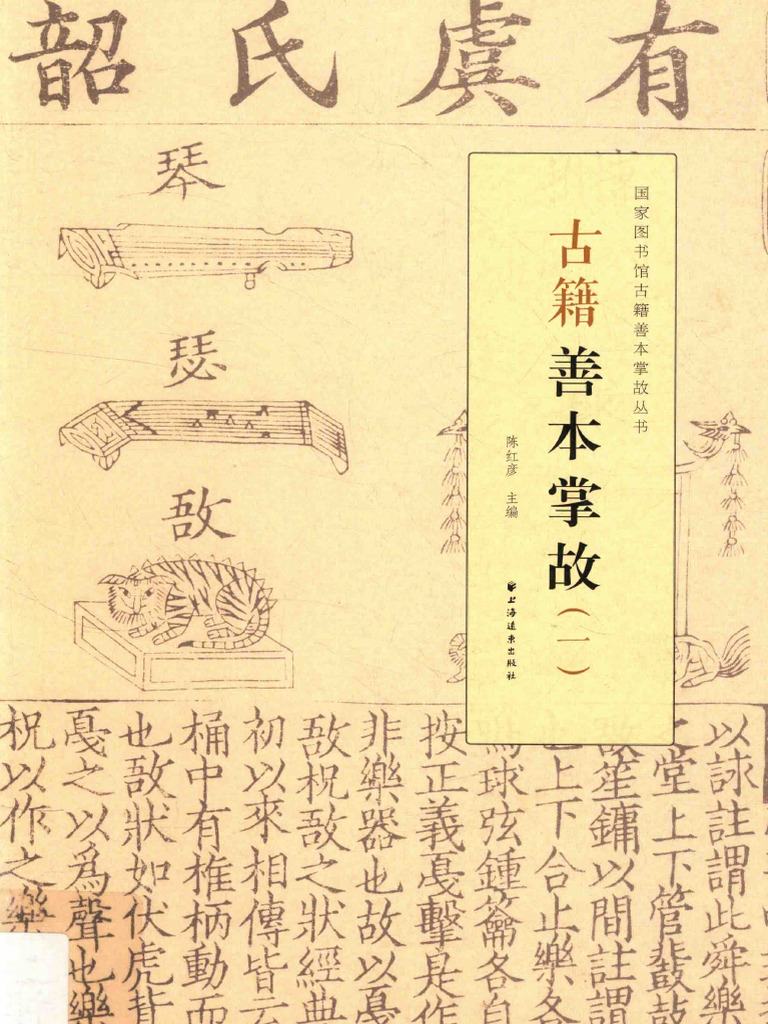 有虞氏韶
琴
瑟
敔
国家图书馆古籍善本掌故丛书
古籍善本掌故(一)
陈红彦 主编
上海远东出版社
以詠註謂此舜樂
堂上下管鼗鼓
笙鏞以間註謂
上下合止樂各
球弦鍾籥各自
按正義戞擊是作
非樂器也故以戞
敔柷敔之狀經典
初以來相傳皆云
桶中有椎柄動而
也敔狀如伏虎背
戞之以爲聲也樂
柷以作之樂